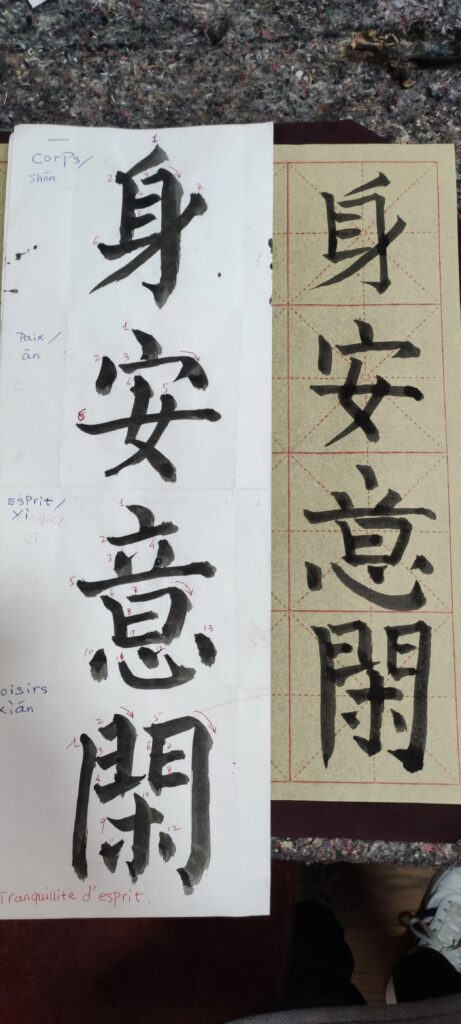 Corps/
shēn
身
Paix/
ān
安
Esprit/
意
oisirs
xián
閑
Tranquillite d'esprit.
身
安
意
閑